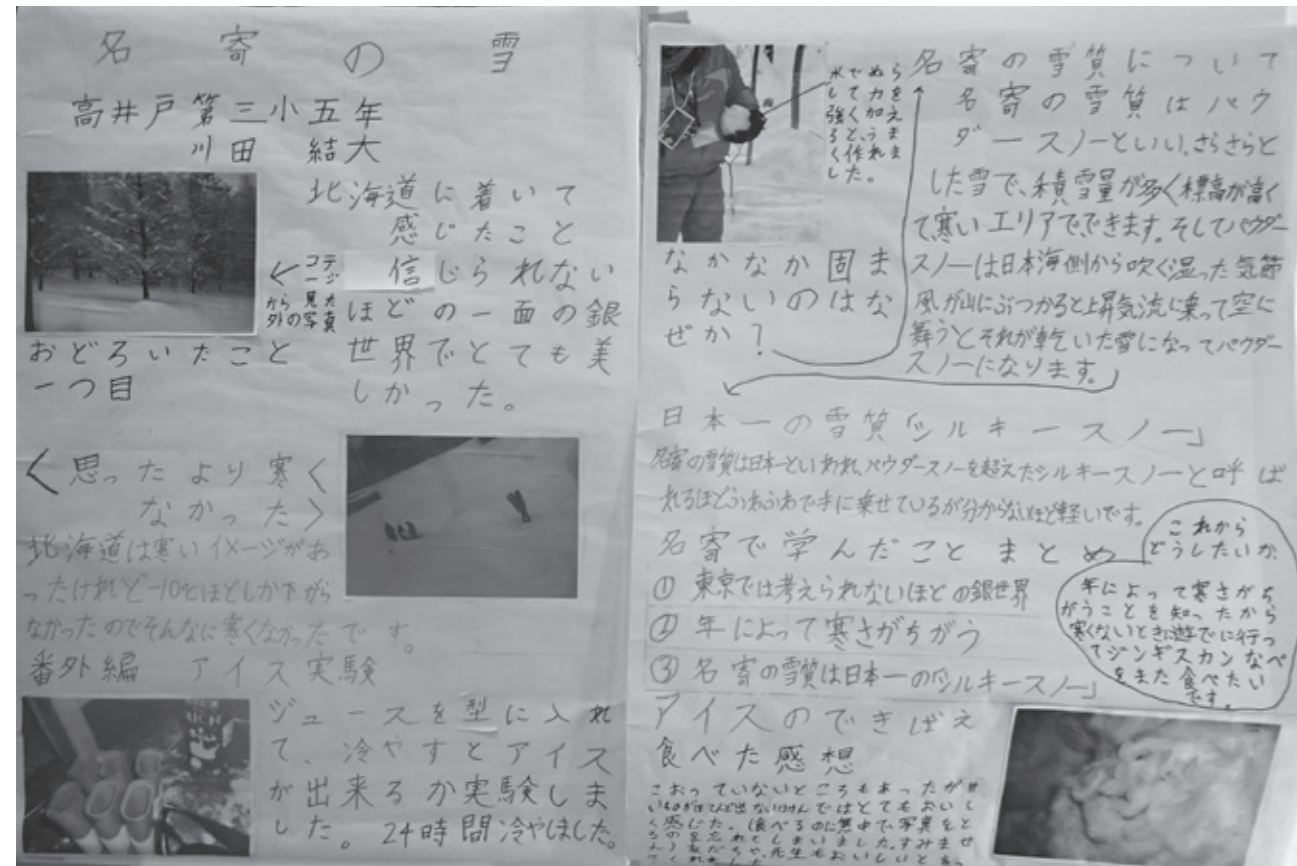 名寄の雪
高井戸第三小五年
川田 結大
北海道に着いて
感じたこと
信じられない
ほどの一面の銀
世界でとても美
しかった。
←コテージ
から見た
外の写真
おどろいたこと
一つ目
<思ったより寒く
なかった>
北海道は寒いイメージがあ
ったけれど-10℃ほどしか下がら
なかったのでそんなに寒くなかったです。
番外編 アイス実験
ジュースを型に入れ
て、冷やすとアイス
が出来るか実験しま
した。24時間冷やしました。
水でぬら
して力を
強く加え
ると、うま
く作れま
した。
なかなか固ま
らないのはな
ぜか?
名寄の雪質について
名寄の雪質はパウ
ダースノーといい、さらさらと
した雪で、積雪量が多く標高が高く
て寒いエリアでできます。そしてパウダー
スノーは日本海側から吹く湿った気節
風が山にぶつかると上昇気流に乗って空に
舞うとそれが乾いた雪になってパウダー
スノーになります。
日本一の雪質「シルキースノー」
名寄の雪質は日本一といわれ、パウダースノーを超えたシルキースノーと呼ば
れるほどふわふわで手に乗せているが分からないほど軽いです。
名寄で学んだこと まとめ
① 東京では考えられないほどの銀世界
② 年によって寒さがちがう
③ 名寄の雪質は日本一の「シルキースノー」
これから
どうしたいか、
年によって寒さがち
がうことを知ったから
寒くないときに遊びに行っ
てジンギスカンなべ
をまた食べたい
です。
アイスのできばえ
食べた感想
こおっていないところもあったが
ではとてもおいし
く感じた。(食べるのに夢中で、写真をと
るのを忘れてしまいました。すみませ
ん)友だちや、先生もおいしいと言っ
てくれました